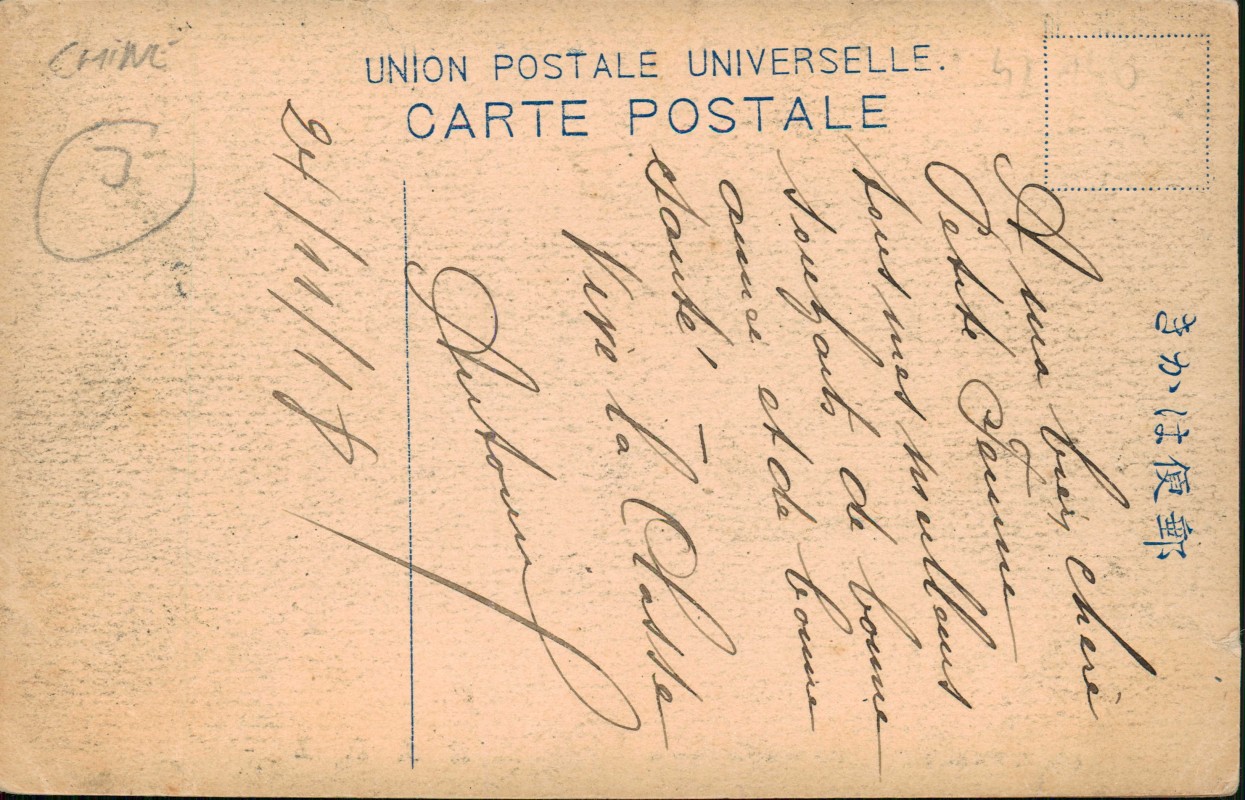 CHINE
UNION POSTALE UNIVERSELLE.
CARTE POSTALE
きかは便郵
A ma bien cheré
Petite Femme
tous mes meilleurs
souhaits de bonne
année et de bonne
santé! —
Vive la Classe
Antony
24/11/18
J